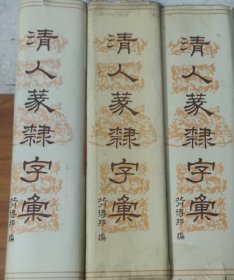 清人篆隸字彙
北川博邦 編
清人篆隸字彙
北川博邦 編
清人篆隸字彙
北川博邦 編